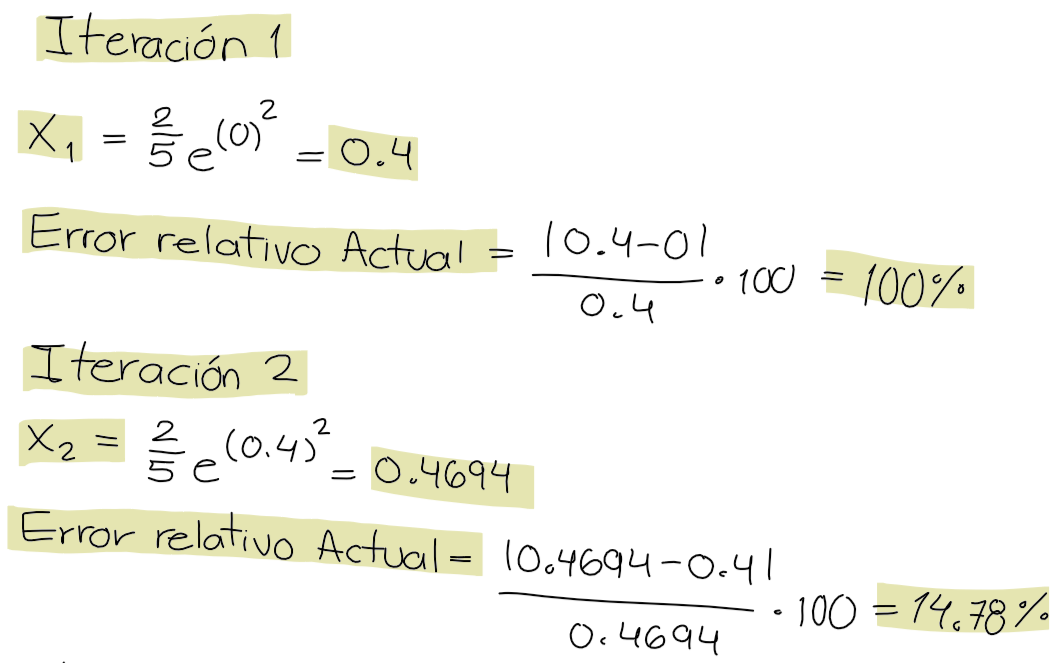 Iteración 1
X₁ = 2/5 e^(0)² = 0.4
Error relativo Actual = |0.4-0|/0.4 · 100 = 100%
Iteración 2
X₂ = 2/5 e^(0.4)² = 0.4694
Error relativo Actual = |0.4694-0.4|/0.4694 · 100 = 14.78%